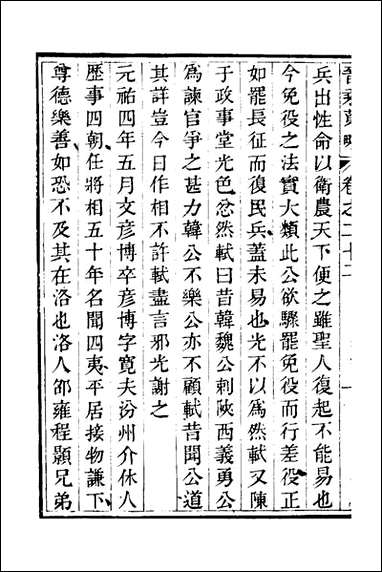 兵出性命以衛農天下便之雖聖人復起不能易也
今免役之法實大類此公欲驟罷免役而行差役正
如罷長征而復民兵蓋未易也光不以爲然軾又陳
于政事堂光色忿然軾曰昔韓魏公刺陝西義勇公
爲諫官爭之甚力韓公不樂公亦不顧軾昔聞公道
其詳豈今日作相不許軾盡言邪光謝之
元祐四年五月文彥博卒彥博字寬夫汾州介休人
歷事四朝任將相五十年名聞四夷平居接物謙下
尊德樂善如恐不及其在洛也洛人邵雍程顥兄弟